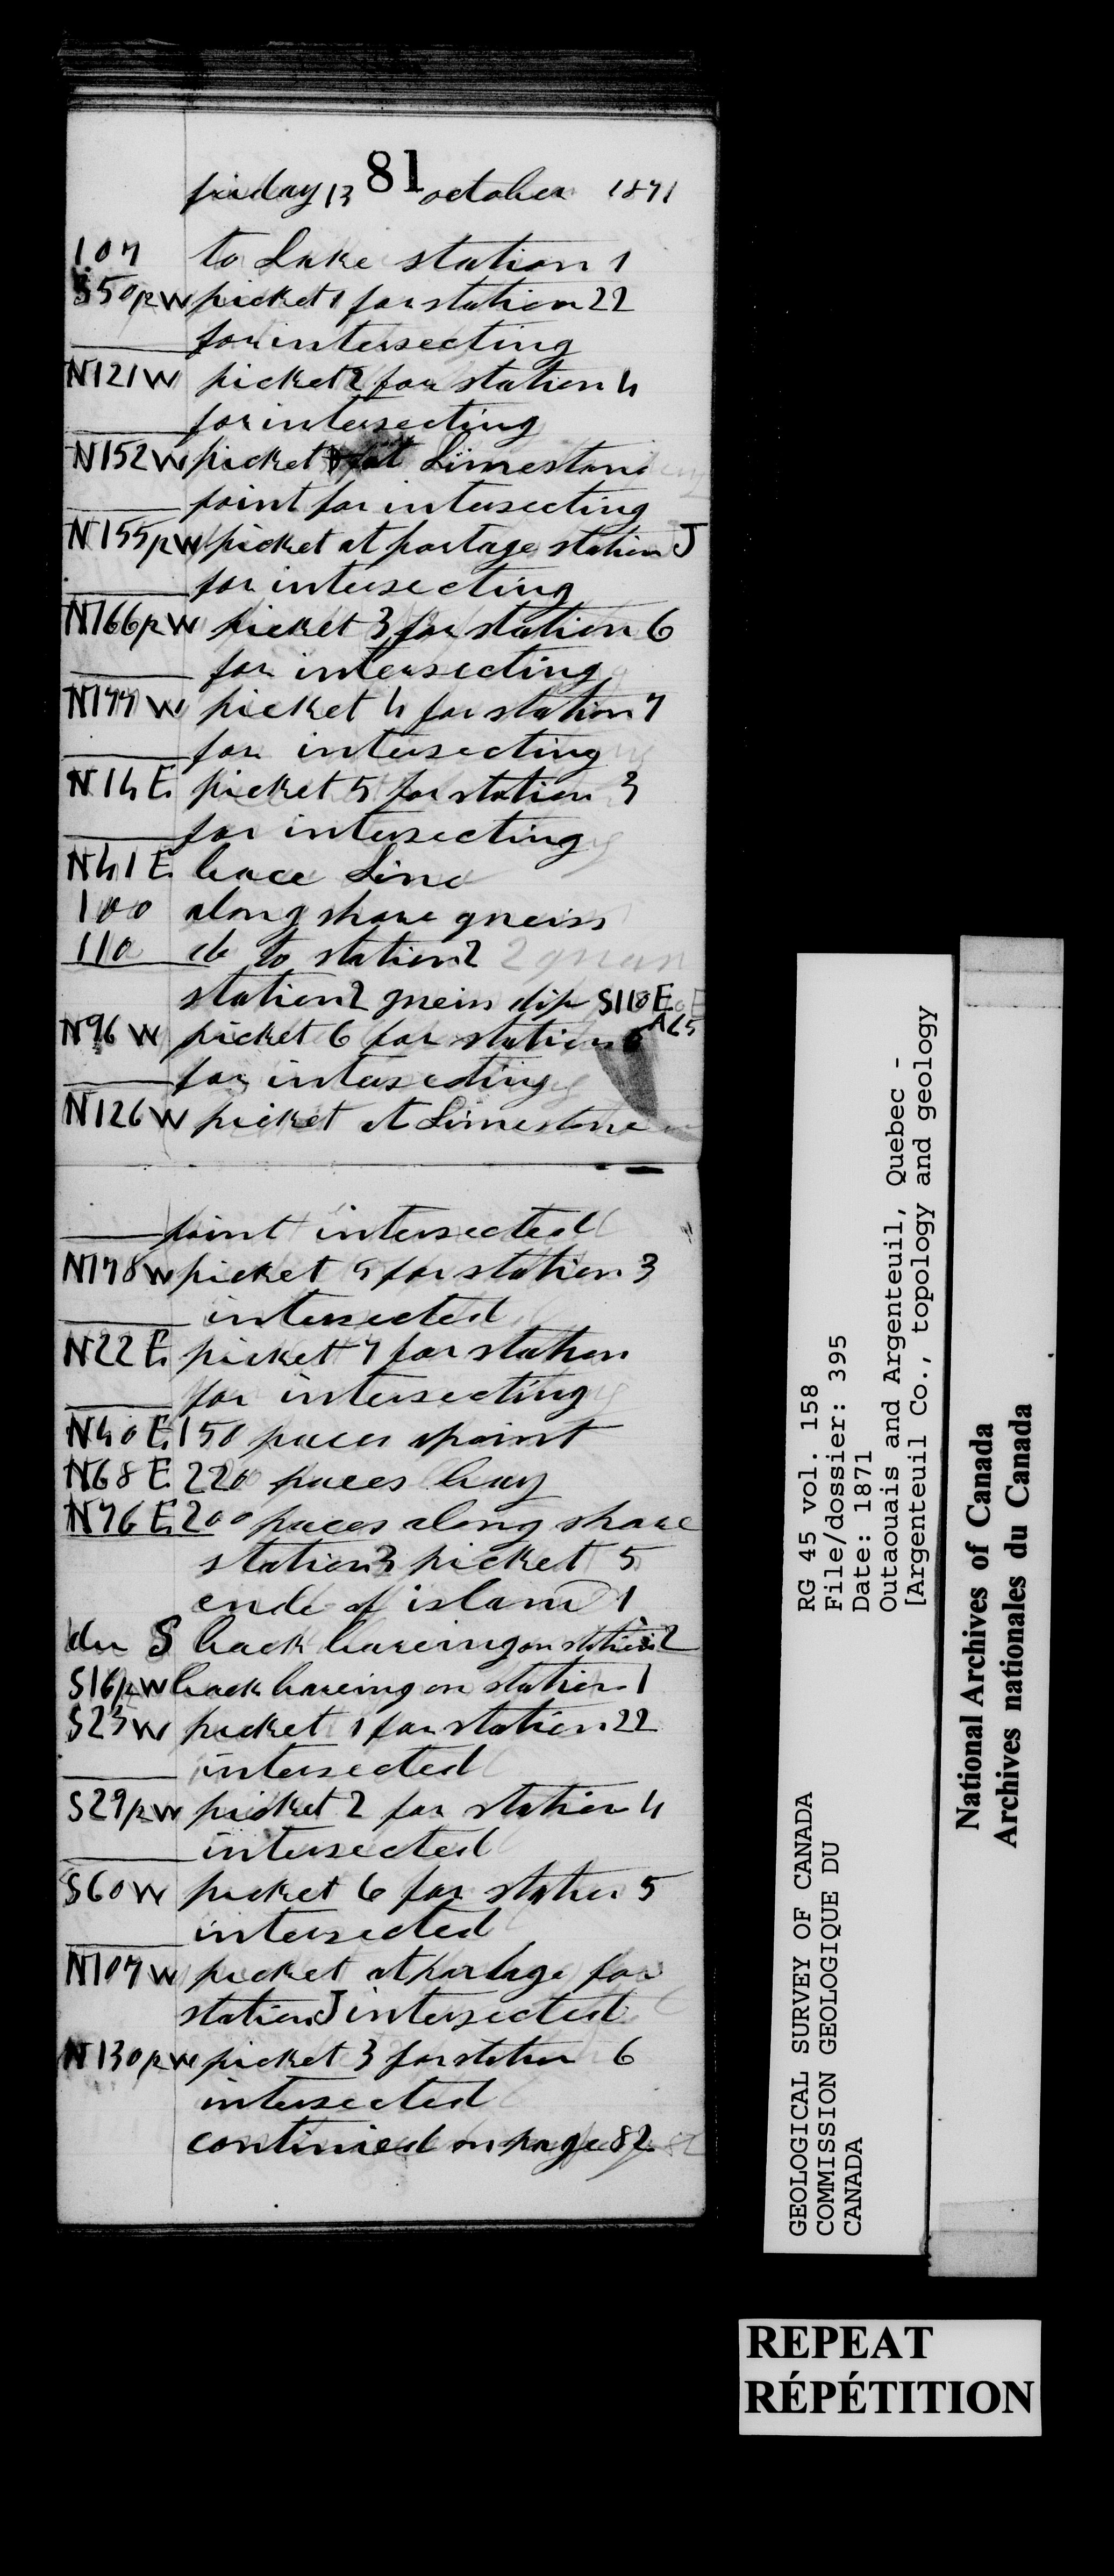 81
friday 13 october 1871
107 to Lake station 1
S50½W picket 1 for station 22
for intersecting
N121W picket 2 for station 4
for intersecting
N152W picket at Limestone
point for intersecting
N155½W picket at portage station J
for intersecting
N166½W picket 3 for station 6
for intersecting
N177W picket 4 for station 7
for intersecting
N14E picket 5 for station 3
for intersecting
N41E bace Line
100 along shore gneiss
110 do to station 2
station 2 gneiss dip S110E
A65
N96W picket 6 for station
for intersecting
N126W picket at Limestone
point intersected
N178W picket 5 for station 3
intersected
N22E picket 7 for station
for intersecting
N40E 150 paces apoint
N68E 220 paces bay
N76E 200 paces along shore
station 3 picket 5
ende of island 1
du S back bareing on station 2
S16½W back bareing on station 1
S23W picket 1 for station 22
intersected
S29½W picket 2 for station 4
intersected
S60W picket 6 for station 5
intersected
N107W picket at portage for
station J intersected
N130½W picket 3 for station 6
intersected
continied on page 82
GEOLOGICAL SURVEY OF CANADA
COMMISSION GEOLOGIQUE DU
CANADA
RG 45 vol. 158
File/dossier: 395
Date: 1871
Outaouais and Argenteuil, Quebec -
[Argenteuil Co., topology and geology
National Archives of Canada
Archives nationales du Canada
REPEAT
RÉPÉTITION